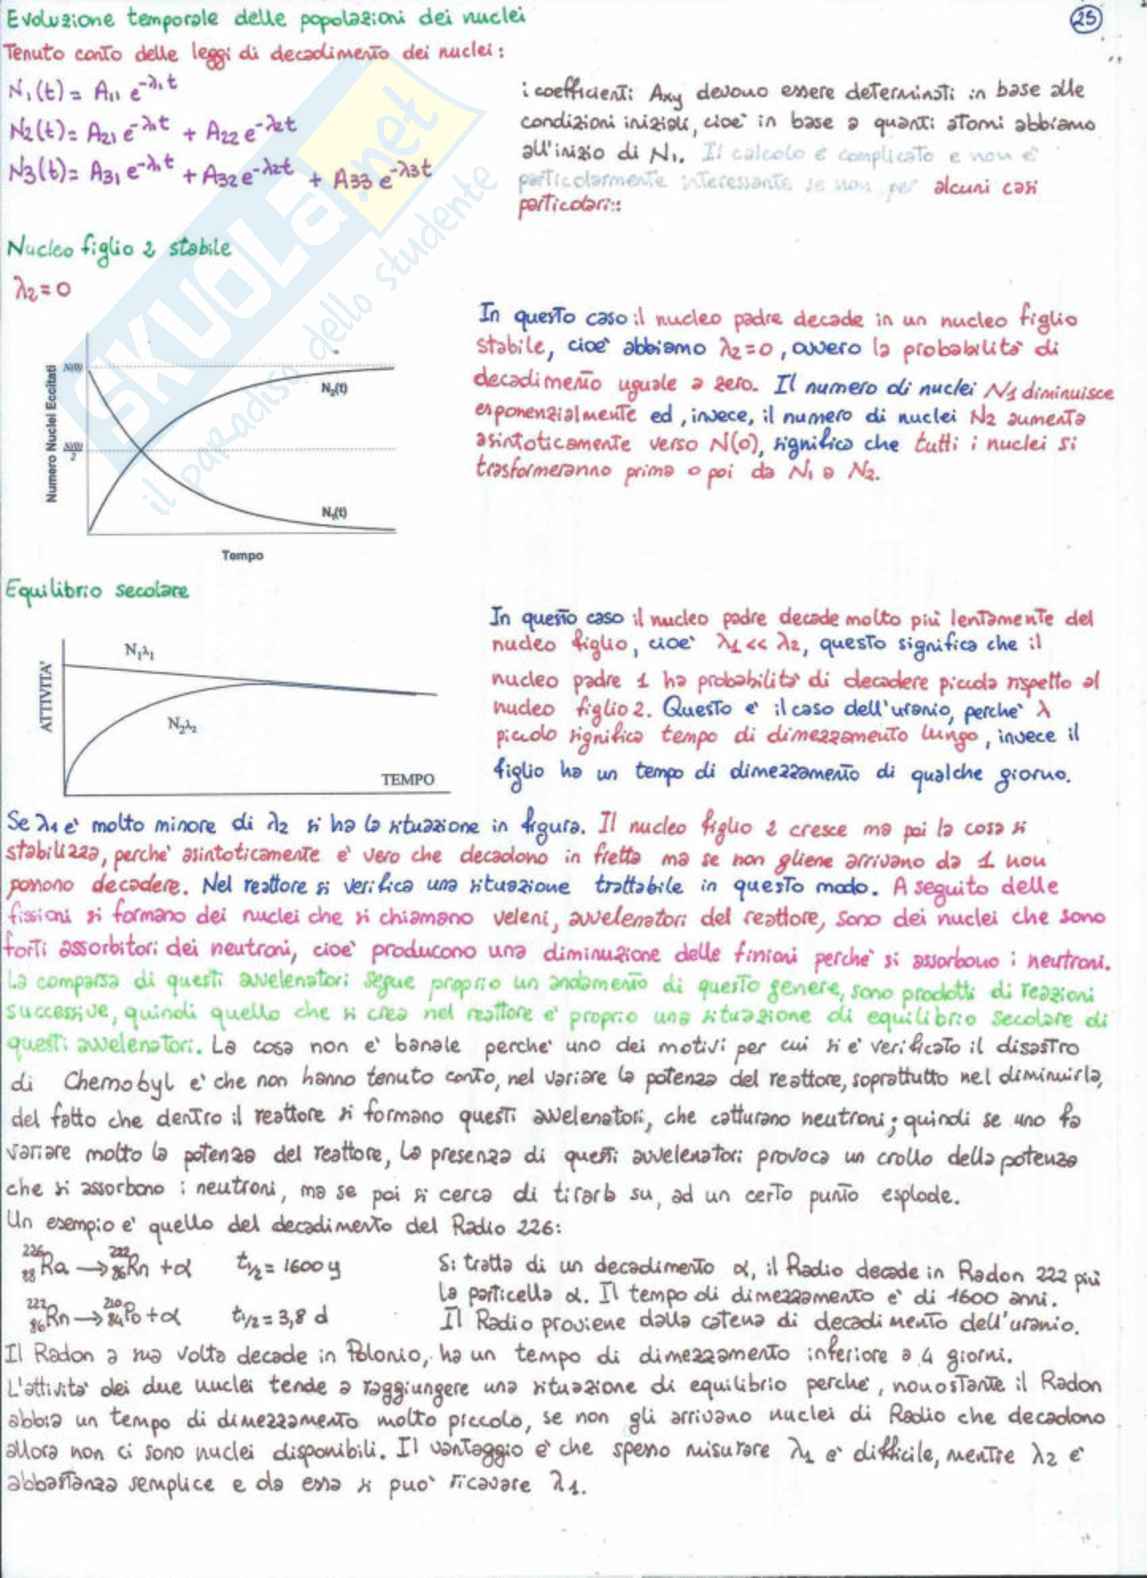 Evoluzione temporale delle popolazioni dei nuclei
25
Tenuto conto delle leggi di decadimento dei nuclei:
N₁(t) = A₁₁ e^-λ₁t
N₂(t) = A₂₁ e^-λ₁t + A₂₂ e^-λ₂t
N₃(t) = A₃₁ e^-λ₁t + A₃₂ e^-λ₂t + A₃₃ e^-λ₃t
i coefficienti Axy devono essere determinati in base alle
condizioni iniziali, cioè in base a quanti atomi abbiamo
all'inizio di N₁. Il calcolo è complicato e non è
particolarmente interessante se non per alcuni casi
particolari::
SKUOLA.net
il paradiso dello studente
Nucleo figlio 2 stabile
λ₂=0
Numero Nuclei Eccitati
N(0)
N(0)/2
N₂(t)
N₁(t)
Tempo
In questo caso il nucleo padre decade in un nucleo figlio
stabile, cioè abbiamo λ₂=0, ovvero la probabilità di
decadimento uguale a zero. Il numero di nuclei N₁ diminuisce
esponenzialmente ed, invece, il numero di nuclei N₂ aumenta
asintoticamente verso N(0), significa che tutti i nuclei si
trasformeranno prima o poi da N₁ a N₂.
Equilibrio secolare
ATTIVITA'
N₁λ₁
N₂λ₂
TEMPO
In questo caso il nucleo padre decade molto più lentamente del
nucleo figlio, cioè λ₁<< λ₂, questo significa che il
nucleo padre 1 ha probabilità di decadere piccola rispetto al
nucleo figlio 2. Questo è il caso dell'uranio, perchè λ
piccolo significa tempo di dimezzamento lungo, invece il
figlio ha un tempo di dimezzamento di qualche giorno.
Se λ₁ è molto minore di λ₂ si ha la situazione in figura. Il nucleo figlio 2 cresce ma poi la cosa si
stabilizza, perchè asintoticamente è vero che decadono in fretta ma se non gliene arrivano da 1 non
possono decadere. Nel reattore si verifica una situazione trattabile in questo modo. A seguito delle
fissioni si formano dei nuclei che si chiamano veleni, avvelenatori del reattore, sono dei nuclei che sono
forti assorbitori dei neutroni, cioè producono una diminuzione delle fissioni perchè si assorbono i neutroni.
La comparsa di questi avvelenatori segue proprio un andamento di questo genere, sono prodotti di reazioni
successive, quindi quello che si crea nel reattore è proprio una situazione di equilibrio secolare di
questi avvelenatori. La cosa non è banale perchè uno dei motivi per cui si è verificato il disastro
di Chernobyl è che non hanno tenuto conto, nel variare la potenza del reattore, soprattutto nel diminuirla,
del fatto che dentro il reattore si formano questi avvelenatori, che catturano neutroni; quindi se uno fa
variare molto la potenza del reattore, la presenza di questi avvelenatori provoca un crollo della potenza
che si assorbono i neutroni, ma se poi si cerca di tirarla su, ad un certo punto esplode.
Un esempio è quello del decadimento del Radio 226:
²²⁶₈₈Ra → ²²²₈₆Rn + α t₁/₂ = 1600 y
²²²₈₆Rn → ²¹⁰₈₄Po + α t₁/₂ = 3,8 d
Si tratta di un decadimento α, il Radio decade in Radon 222 più
la particella α. Il tempo di dimezzamento è di 1600 anni.
Il Radio proviene dalla catena di decadimento dell'uranio.
Il Radon a sua volta decade in Polonio, ha un tempo di dimezzamento inferiore a 4 giorni.
L'attività dei due nuclei tende a raggiungere una situazione di equilibrio perchè, nonostante il Radon
abbia un tempo di dimezzamento molto piccolo, se non gli arrivano nuclei di Radio che decadono
allora non ci sono nuclei disponibili. Il vantaggio è che spesso misurare λ₁ è difficile, mentre λ₂ è
abbastanza semplice e da essa si può ricavare λ₁.